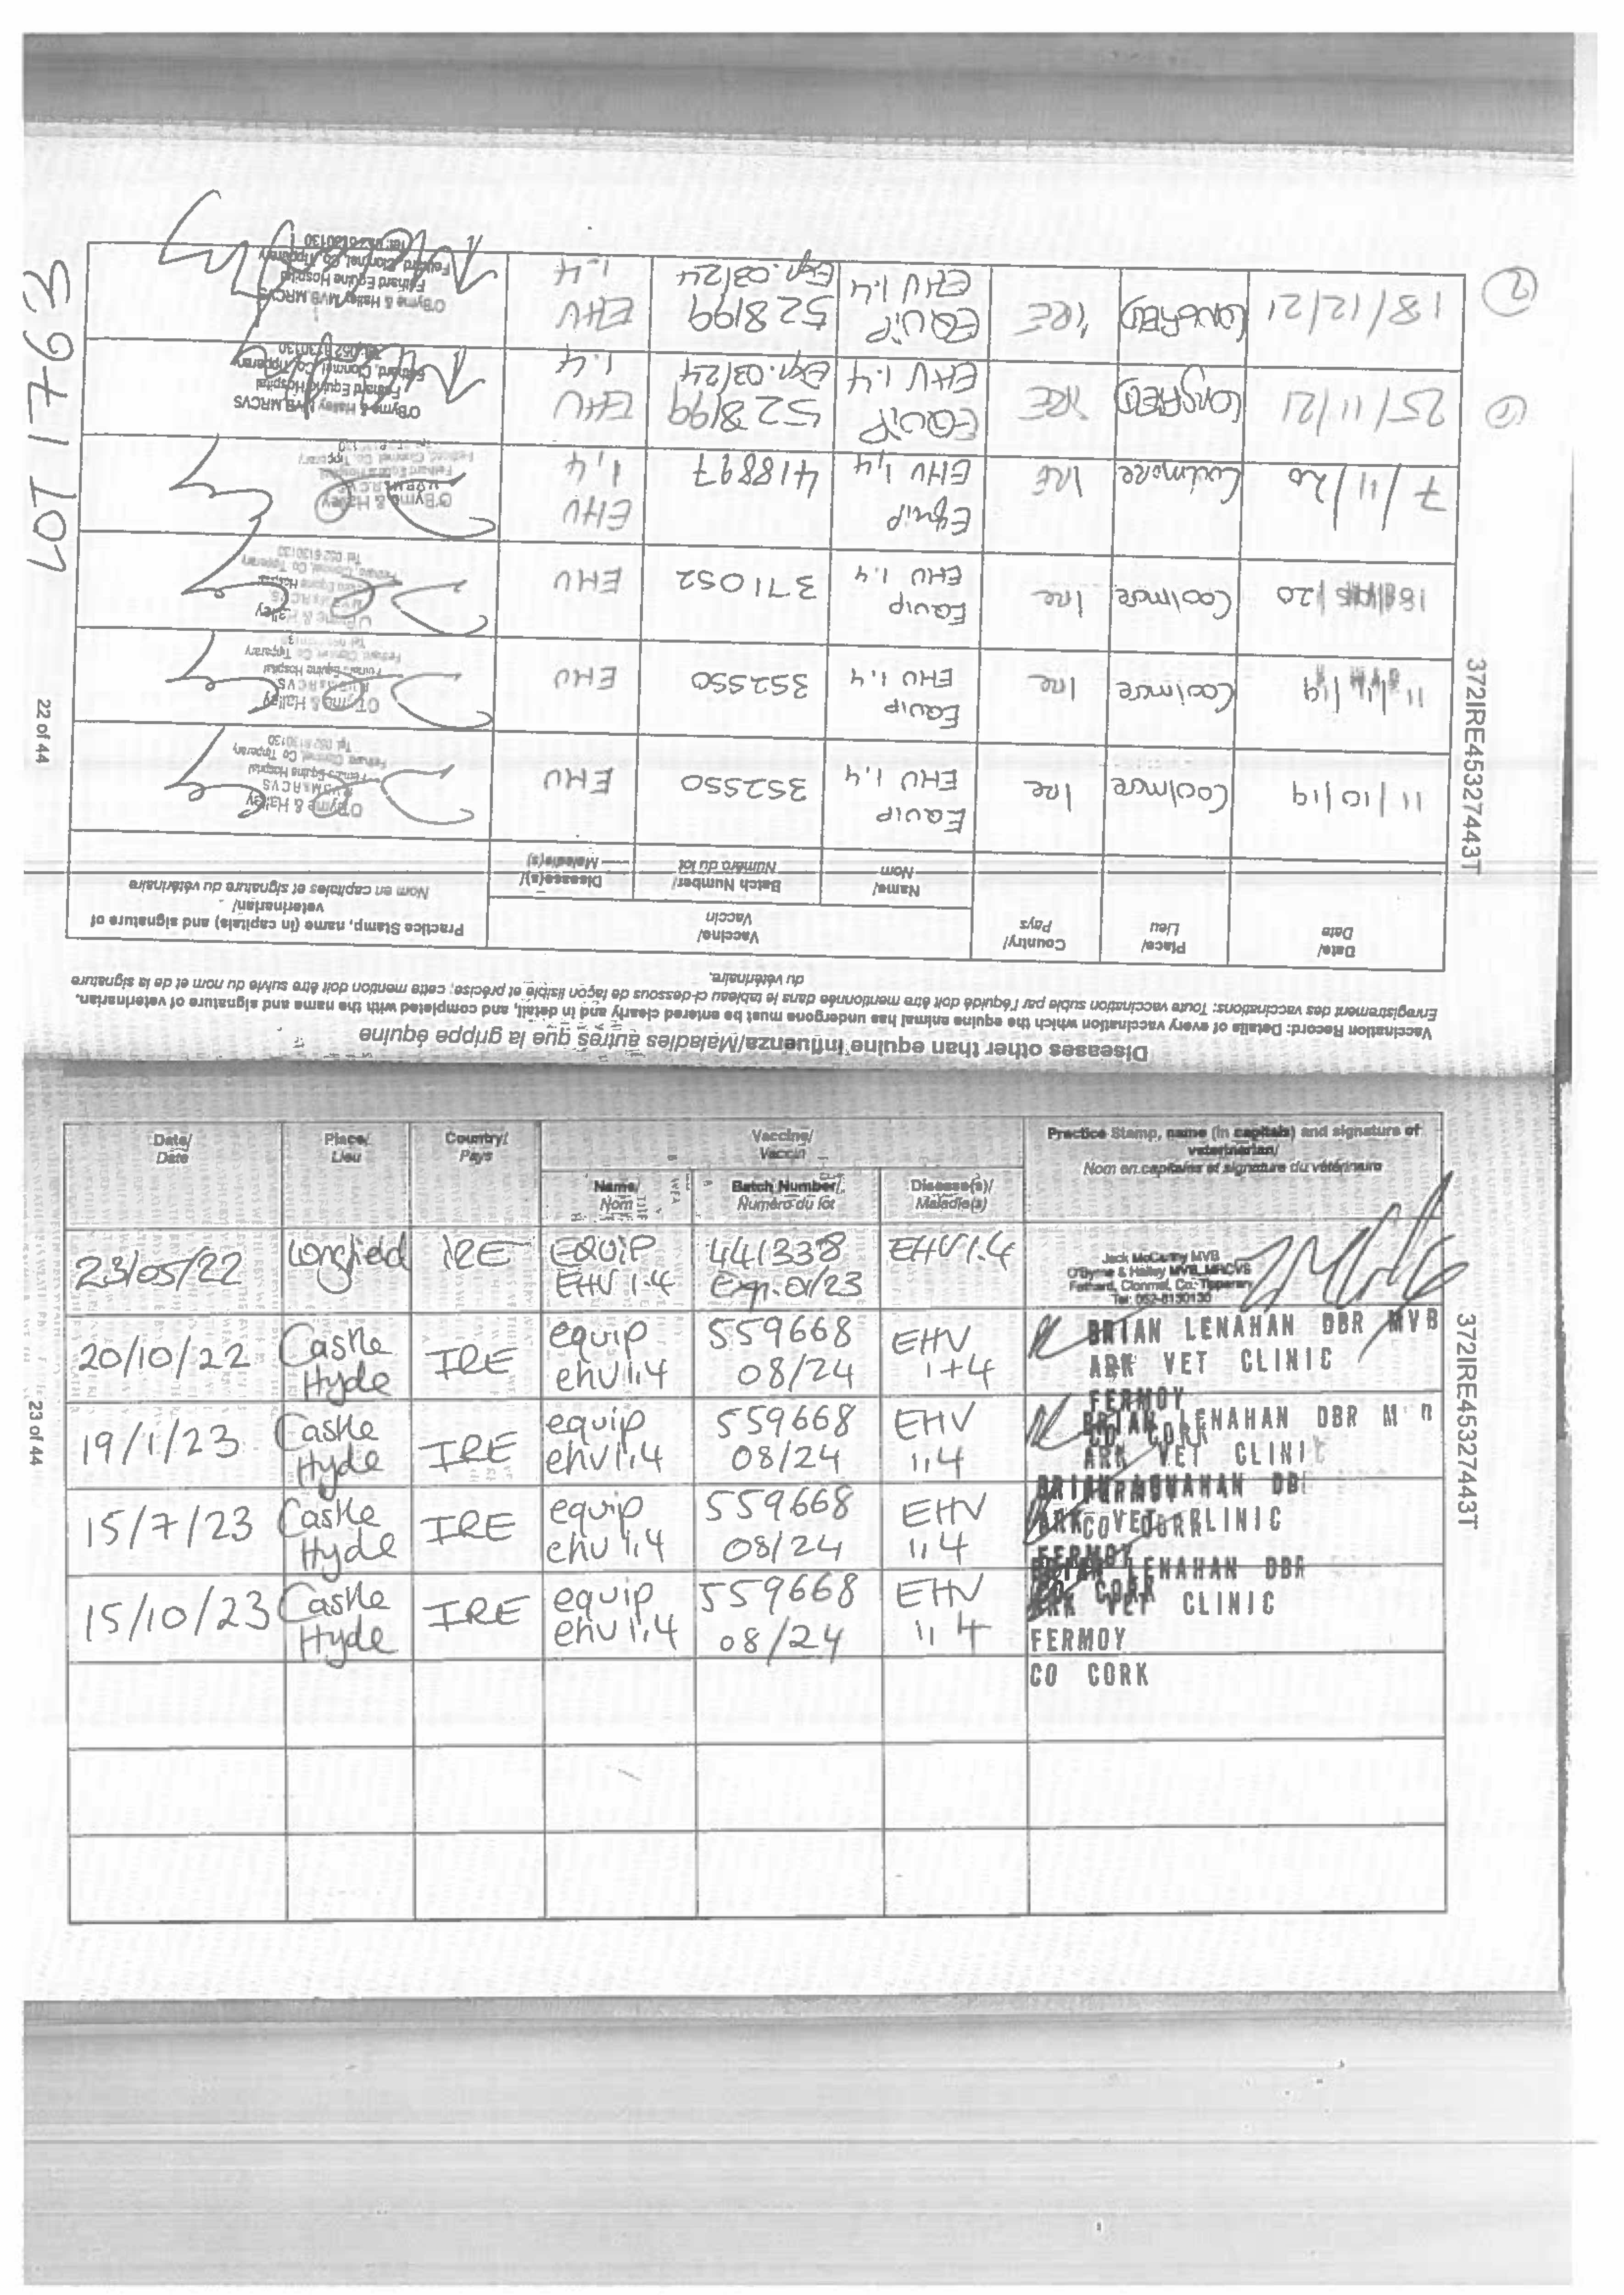 LOT 1763
22 of 44
372IRE45327443T
Diseases other than equine influenza/Maladies autres que la grippe équine
Vaccination Record: Details of every vaccination which the equine animal has undergone must be entered clearly and in detail, and completed with the name and signature of veterinarian.
Enregistrement des vaccinations: Toute vaccination subie par l'équidé doit être mentionnée dans le tableau ci-dessous de façon lisible et précise; cette mention doit être suivie du nom et de la signature
du vétérinaire.
Date/ Place/ Country/ Vaccine/ Practice Stamp, name (in capitals) and signature of
Date Lieu Pays Vaccin veterinarian/
Name/ Batch Number/ Disease(s)/ Nom en capitales et signature du vétérinaire
Nom Numéro du lot Maladie(s)
11/10/19 Coolmore Ire Equip 352550 EHV O'Byrne & Halley
EHV 1,4 Fethard Equine Hospital
Fethard, Clonmel, Co. Tipperary
Tel: 052 6130130
11/11/19 Coolmore Ire Equip 352550 EHV O'Byrne & Halley
EHV 1.4 Fethard Equine Hospital
Fethard, Clonmel, Co. Tipperary
20 Coolmore Ire Equip 371052 EHV O'Byrne & Halley
EHV 1.4 Fethard Equine Hospital
Fethard, Clonmel, Co. Tipperary
Tel: 052 6130130
7/11/20 Coolmore IRE Equip 418897 EHV O'Byrne & Halley
EHV 1,4 1,4 Fethard Equine Hospital
Fethard, Clonmel, Co. Tipperary
① 25/11/21 LONGFIELD IRE EQUIP 528199 EHV O'Byrne & Halley MVB, MRCVS
EHV 1.4 Exp. 03/24 1.4 Fethard Equine Hospital
Fethard, Clonmel, Co. Tipperary
Tel: 052 6130130
② 18/12/21 LONGFIELD IRE EQUIP 528199 EHV O'Byrne & Halley MVB, MRCVS
EHV 1.4 Exp. 03/24 1.4 Fethard Equine Hospital
Fethard, Clonmel, Co. Tipperary
Tel: 052 6130130
Date/ Place/ Country/ Vaccine/ Practice Stamp, name (in capitals) and signature of
Date Lieu Pays Vaccin veterinarian/
Nom en capitales et signature du vétérinaire
Name/ Batch Number/ Disease(s)/
Nom Numéro du lot Maladie(s)
23/05/22 Longfield IRE EQUIP 441338 EHV 1.4 Jack McCarthy MVB
EHV 1.4 Exp. 01/23 O'Byrne & Halley MVB, MRCVS
Fethard, Clonmel, Co. Tipperary
Tel: 052-6130130
20/10/22 Castle IRE equip 559668 EHV BRIAN LENAHAN DBR MVB
Hyde ehv 1,4 08/24 1+4 ARK VET CLINIC
FERMOY
CO CORK
19/1/23 Castle IRE equip 559668 EHV BRIAN LENAHAN DBR
Hyde ehv 1,4 08/24 1,4 ARK VET CLINIC
FERMOY
CO CORK
15/7/23 Castle IRE equip 559668 EHV BRIAN LENAHAN DBR
Hyde ehv 1,4 08/24 1,4 ARK VET CLINIC
FERMOY
CO CORK
15/10/23 Castle IRE equip 559668 EHV BRIAN LENAHAN DBR
Hyde ehv 1,4 08/24 1,4 ARK VET CLINIC
FERMOY
CO CORK
23 of 44
372IRE45327443T